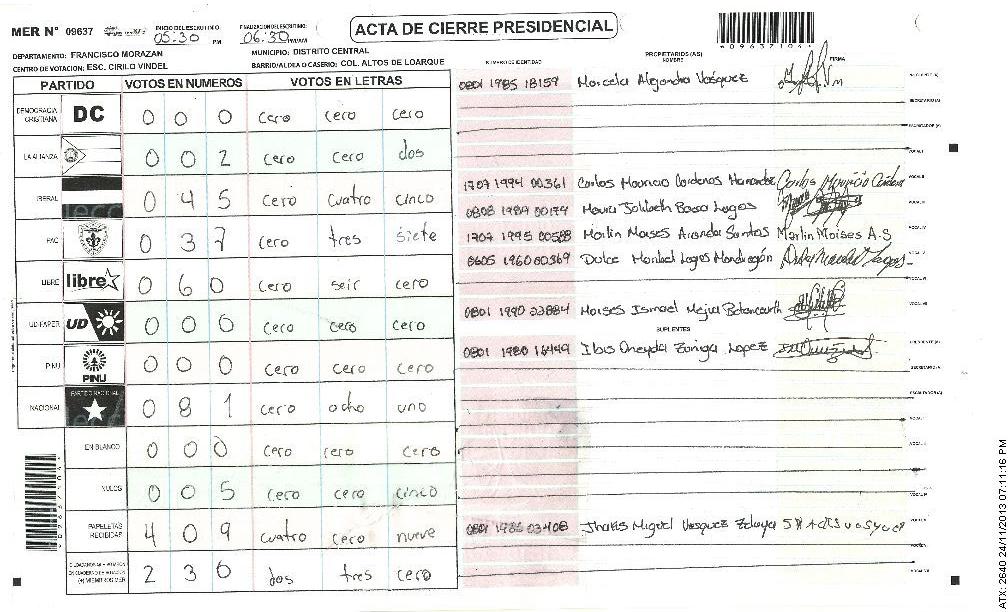 MER N° 09637 INICIO DEL ESCRUTINIO 05:30 PM FINALIZACION DEL ESCRUTINIO: 06:30 PM/AM ACTA DE CIERRE PRESIDENCIAL
DEPARTAMENTO: FRANCISCO MORAZAN MUNICIPIO: DISTRITO CENTRAL
CENTRO DE VOTACION: ESC. CIRILO VINDEL BARRIO/ALDEA O CASERIO: COL. ALTOS DE LOARQUE
NUMERO DE IDENTIDAD PROPIETARIOS (AS) NOMBRE FIRMA
PARTIDO VOTOS EN NUMEROS VOTOS EN LETRAS
DEMOCRACIA CRISTIANA DC 0 0 0 cero cero cero
LA ALIANZA 0 0 2 cero cero dos
LIBERAL 0 4 5 cero cuatro cinco
PAC 0 3 7 cero tres siete
LIBRE libre 0 6 0 cero seis cero
UD-FAPER UD 0 0 0 cero cero cero
PINU PINU 0 0 0 cero cero cero
NACIONAL PARTIDO NACIONAL 0 8 1 cero ocho uno
EN BLANCO 0 0 0 cero cero cero
NULOS 0 0 5 cero cero cinco
PAPELETAS RECIBIDAS 4 0 9 cuatro cero nueve
2 3 0 dos tres cero
0801 1985 18159 Marcela Alejandra Vasquez
1707 1994 00361 Carlos Mauricio Cardenas Hernandez
0808 1989 00174
1707 1995 00588 Marlin Moises Aranda Santos Marlin Moises A.S
0605 1960 00369 Dulce Maribel Lagos Mondragón
0801 1990 23884 Moises Ismael Mejia Betancourth
SUPLENTES
0801 1980 16449 Ibis Oneyda Zuniga Lopez
0801 1986 03408 Miguel Vasquez Zelaya
ATX: 2640 24/11/2013 07:11:16 PM